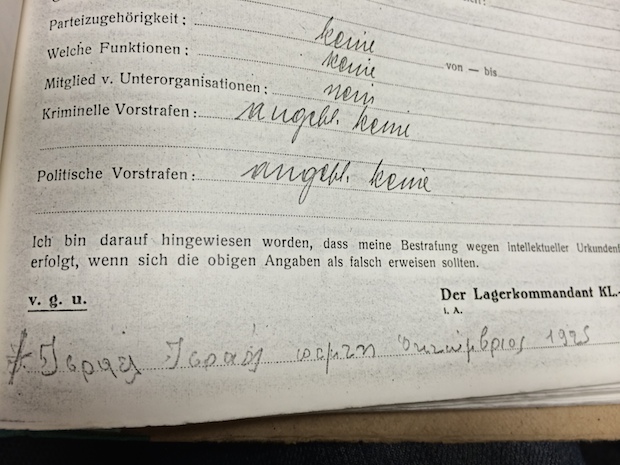 Parteizugehörigkeit: keine
Welche Funktionen: keine von — bis
Mitglied v. Unterorganisationen: nein
Kriminelle Vorstrafen: angebl. keine
Politische Vorstrafen: angebl. keine
Ich bin darauf hingewiesen worden, dass meine Bestrafung wegen intellektueller Urkundenf
erfolgt, wenn sich die obigen Angaben als falsch erweisen sollten.
v. g. u. Der Lagerkommandant KL.-
i. A.
Ισραελ Ισραελ 1925